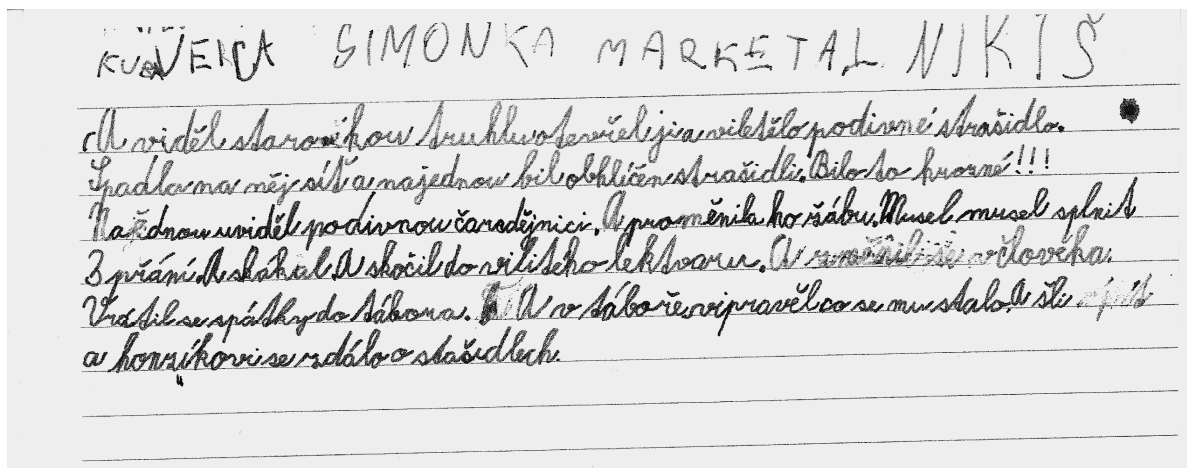 SIMONKA MARKETA L NIKIŠ
A viděl starou truhlu otevřel ji a viletělo podivné strašidlo.
Spadla na něj síť a najednou bil obklíčen strašidli. Bilo to hrozné!!!
Najednou uviděl podivnou čarodějnici. A proměnila ho žábu. Musel musel splnit
3 přání. A skákal A skočil do vilitého lektvaru. A změnil se v člověka.
Vrátil se spátky do tábora. A v táboře vipravěl co se mu stalo. A šli spát
a honzíkovi se zdálo o stašidlech.